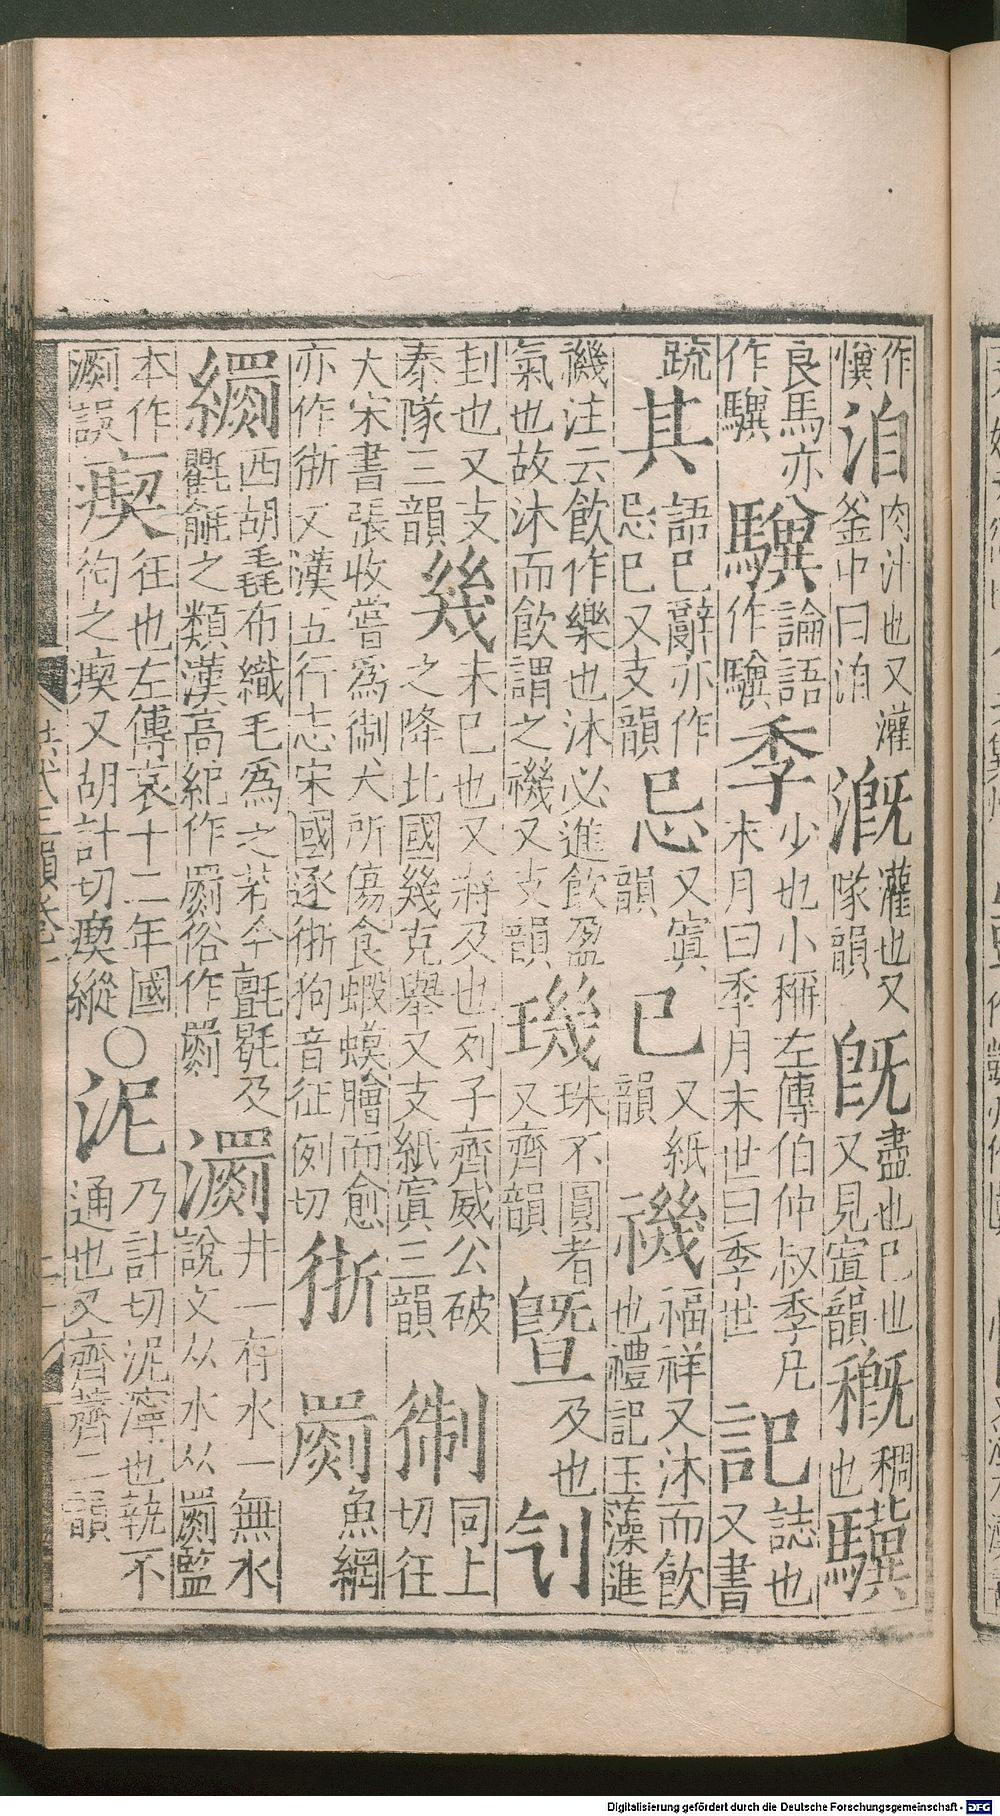 作懻洎肉汁也又灌釜中曰洎漑灌也又隊韻旣盡也已也又見寘韻穊稠也驥
良馬亦作䮷䮷論語作驥季少也小稱左傳伯仲叔季凡末月曰季月末世曰季世記誌也又書
䟽其語已辭亦作忌已又支韻忌又寘韻已又紙韻禨福祥又沐而飲也禮記玉藻進
禨注云飲作樂也沐必進飲盈氣也故沐而飲謂之禨又支韻璣珠不圓者又齊韻暨及也刉
刲也又支泰隊三韻幾未已也又將及也列子齊威公破之降北國幾克舉又支紙寘三韻猘同上切往
犬宋書張收嘗爲猘犬所傷食蝦蟆膾而愈亦作狾又漢五行志宋國逐狾狗音征例切狾罽魚網
繝西胡毳布織毛爲之若今氍毹之類漢高紀作罽俗作𦋺瀱井一有水一無水說文从水从罽監
本作瘈誤瘈狂也左傳哀十二年國狗之瘈又胡計切瘈縱○泥乃計切泥濘也執不通也又齊薺二韻
洪武正韻卷十
Digitalisierung gefördert durch die Deutsche Forschungsgemeinschaft - DFG